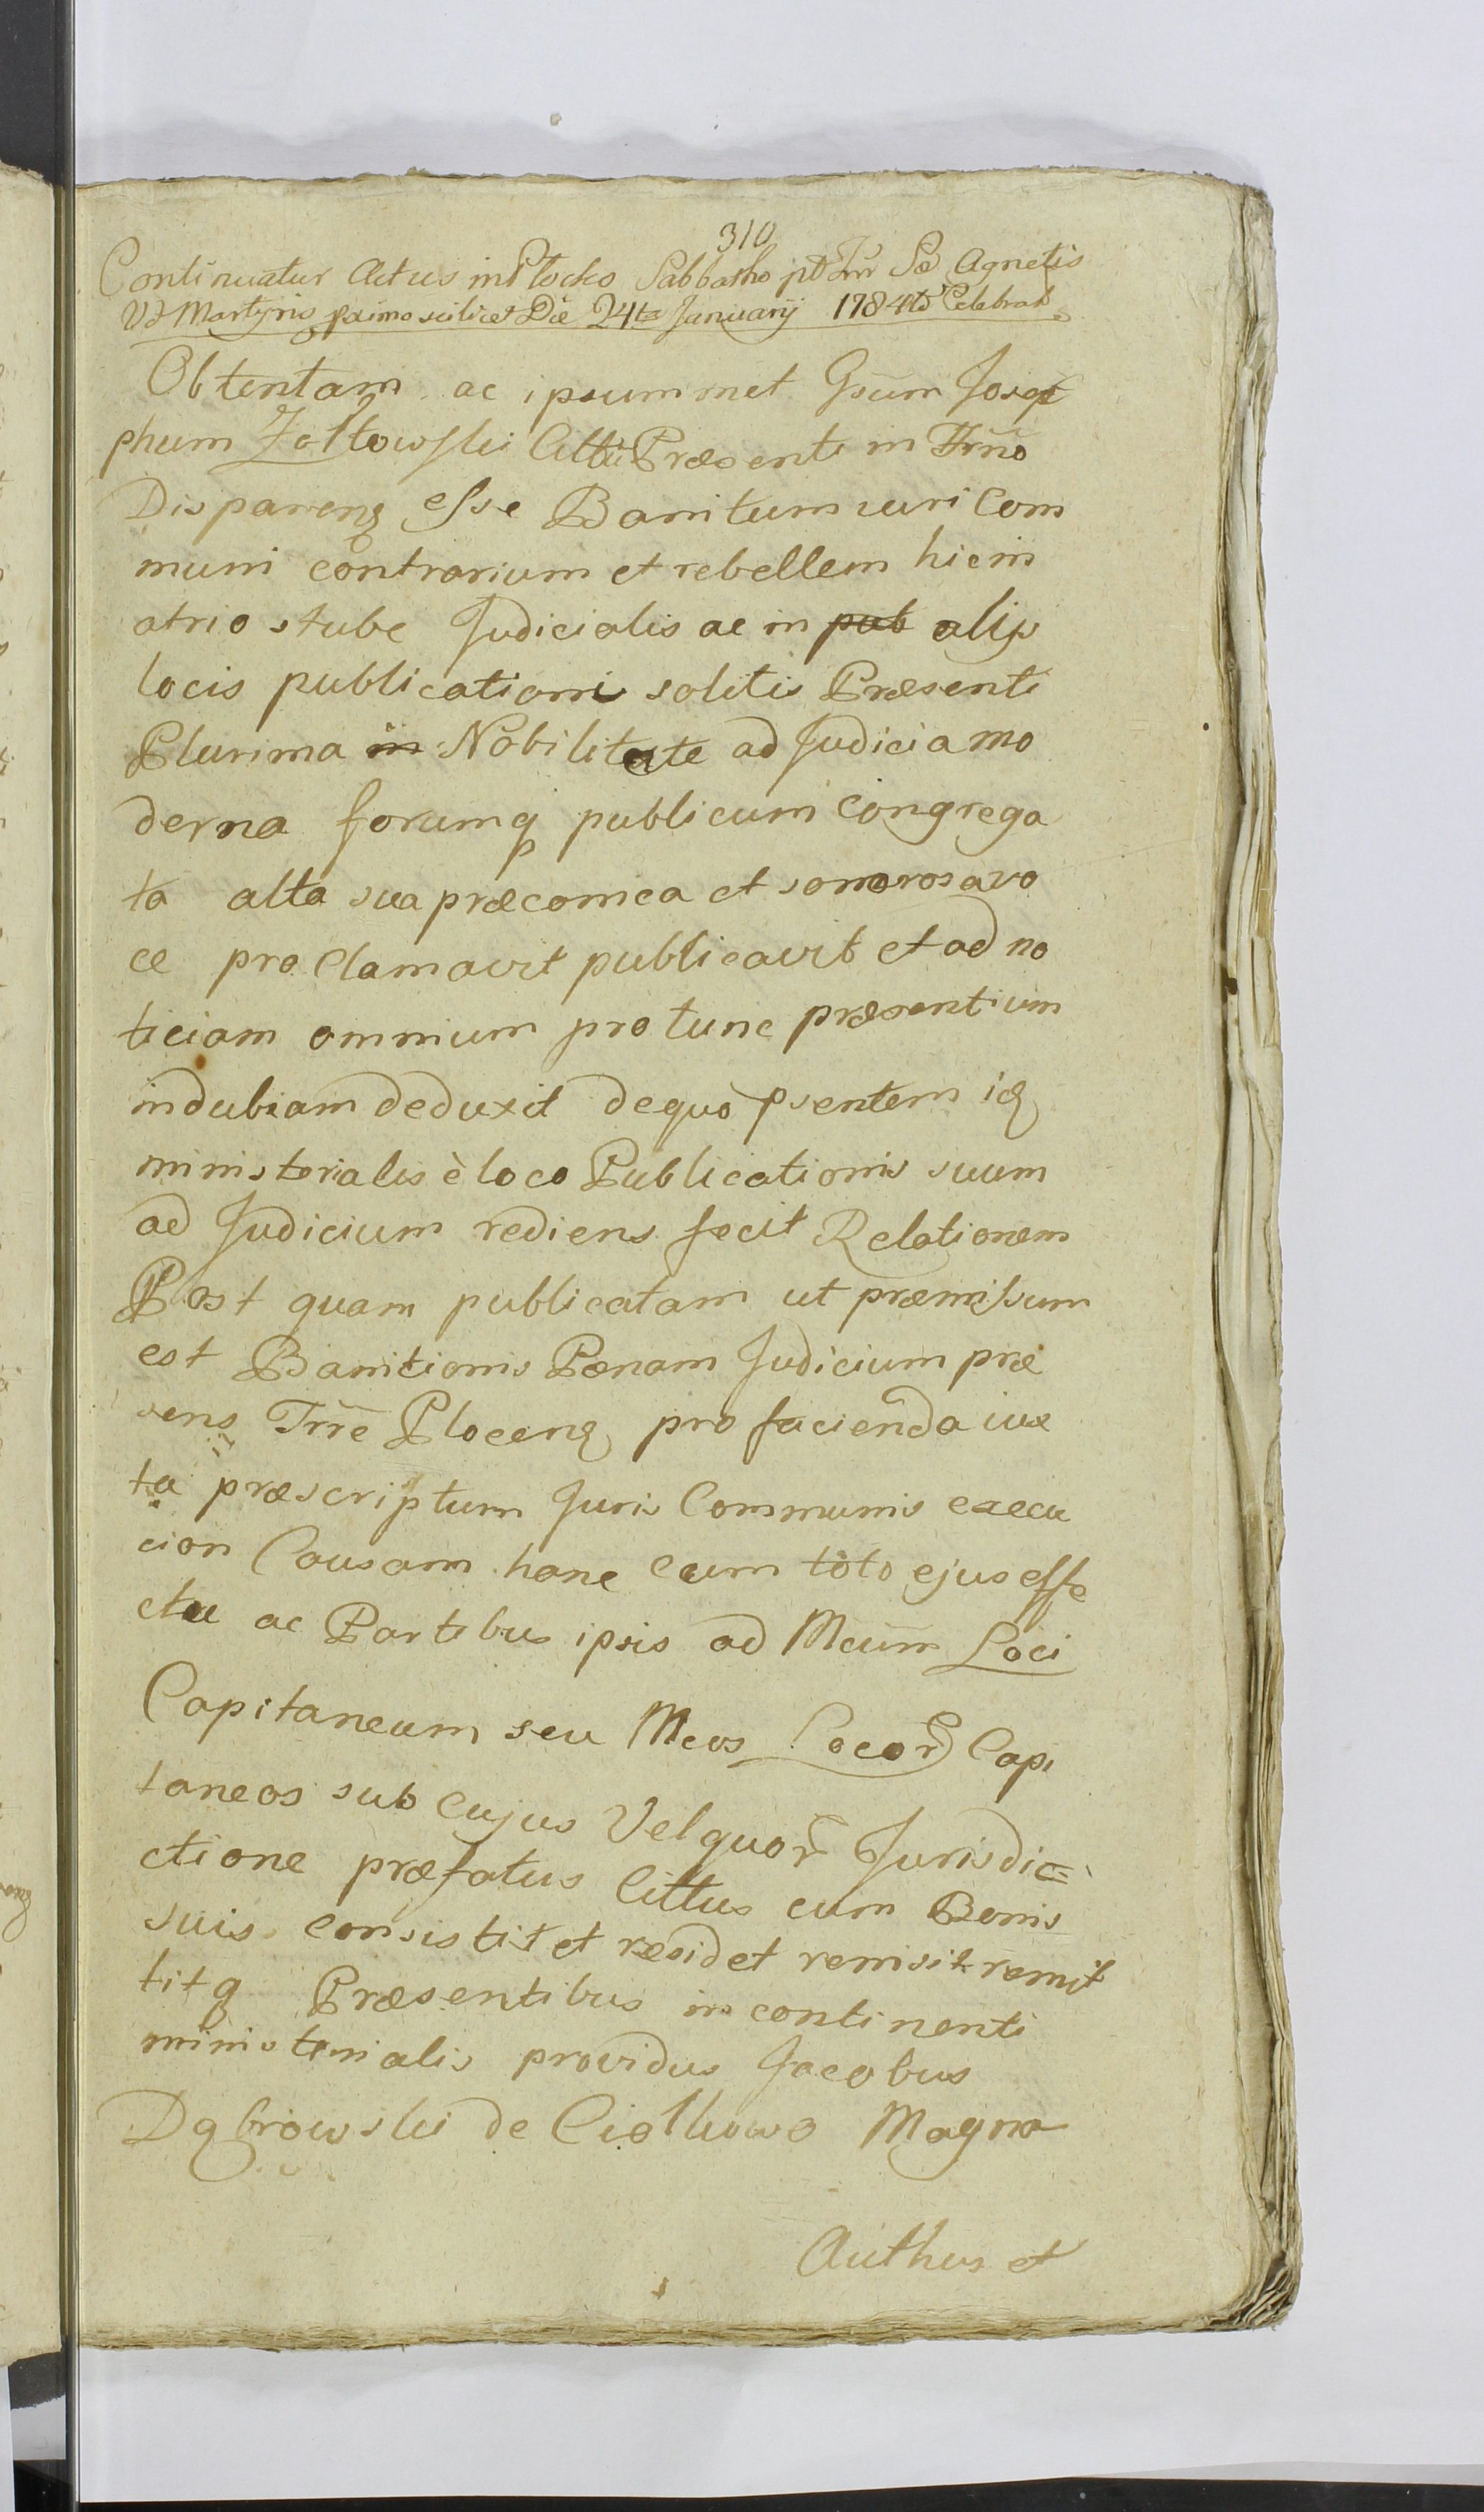 310
Continuatur Actus in Plocko Sabbatho pt Fm Sæ Agnetis
Vt Martyris primo scilicet Die 24ta Januarij 1784to Celebrat
Obtentam ac ipsummet Gsum Jose
phum Zołtowski Cittu Præsenti in Trno
Dispareng esse Banitum iuri Com
muni contrarium et rebellem hic in
atrio stube Judicialis ac in pub alijs
locis publicationi solitis Præsenti
Plurima in Nobilitate ad Judicia mo
derna forumq publicum Congrega
ta alta sua præconica et sonorosa vo
ce proclamavit publicavit et ad no
ticiam omnium pro tunc præsentium
indubiam deduxit de quo psentem id
ministerialis è loco Publicationis suum
ad Judicium rediens fecit Relationem
Post quam publicatam ut præmissum
est Banitionis Pænam Judicium præ
sens Trre Plocenq pro facienda iux
ta præscriptum Juris Communis execu
cion Causam hanc cum toto ejus effe
ctu ac Partibus ipsis ad Mcum Loci
Capitaneum seu Mcos Locor Capi
taneos sub cujus Vel quor Jurisdic=
ctione præfatus Cittus cum Bonis
suis consistit et residet remisit remit
titq Præsentibus in continenti
ministerialis providus Jacobus
Dąbrowski de Ciółkowo Magna
Authus et